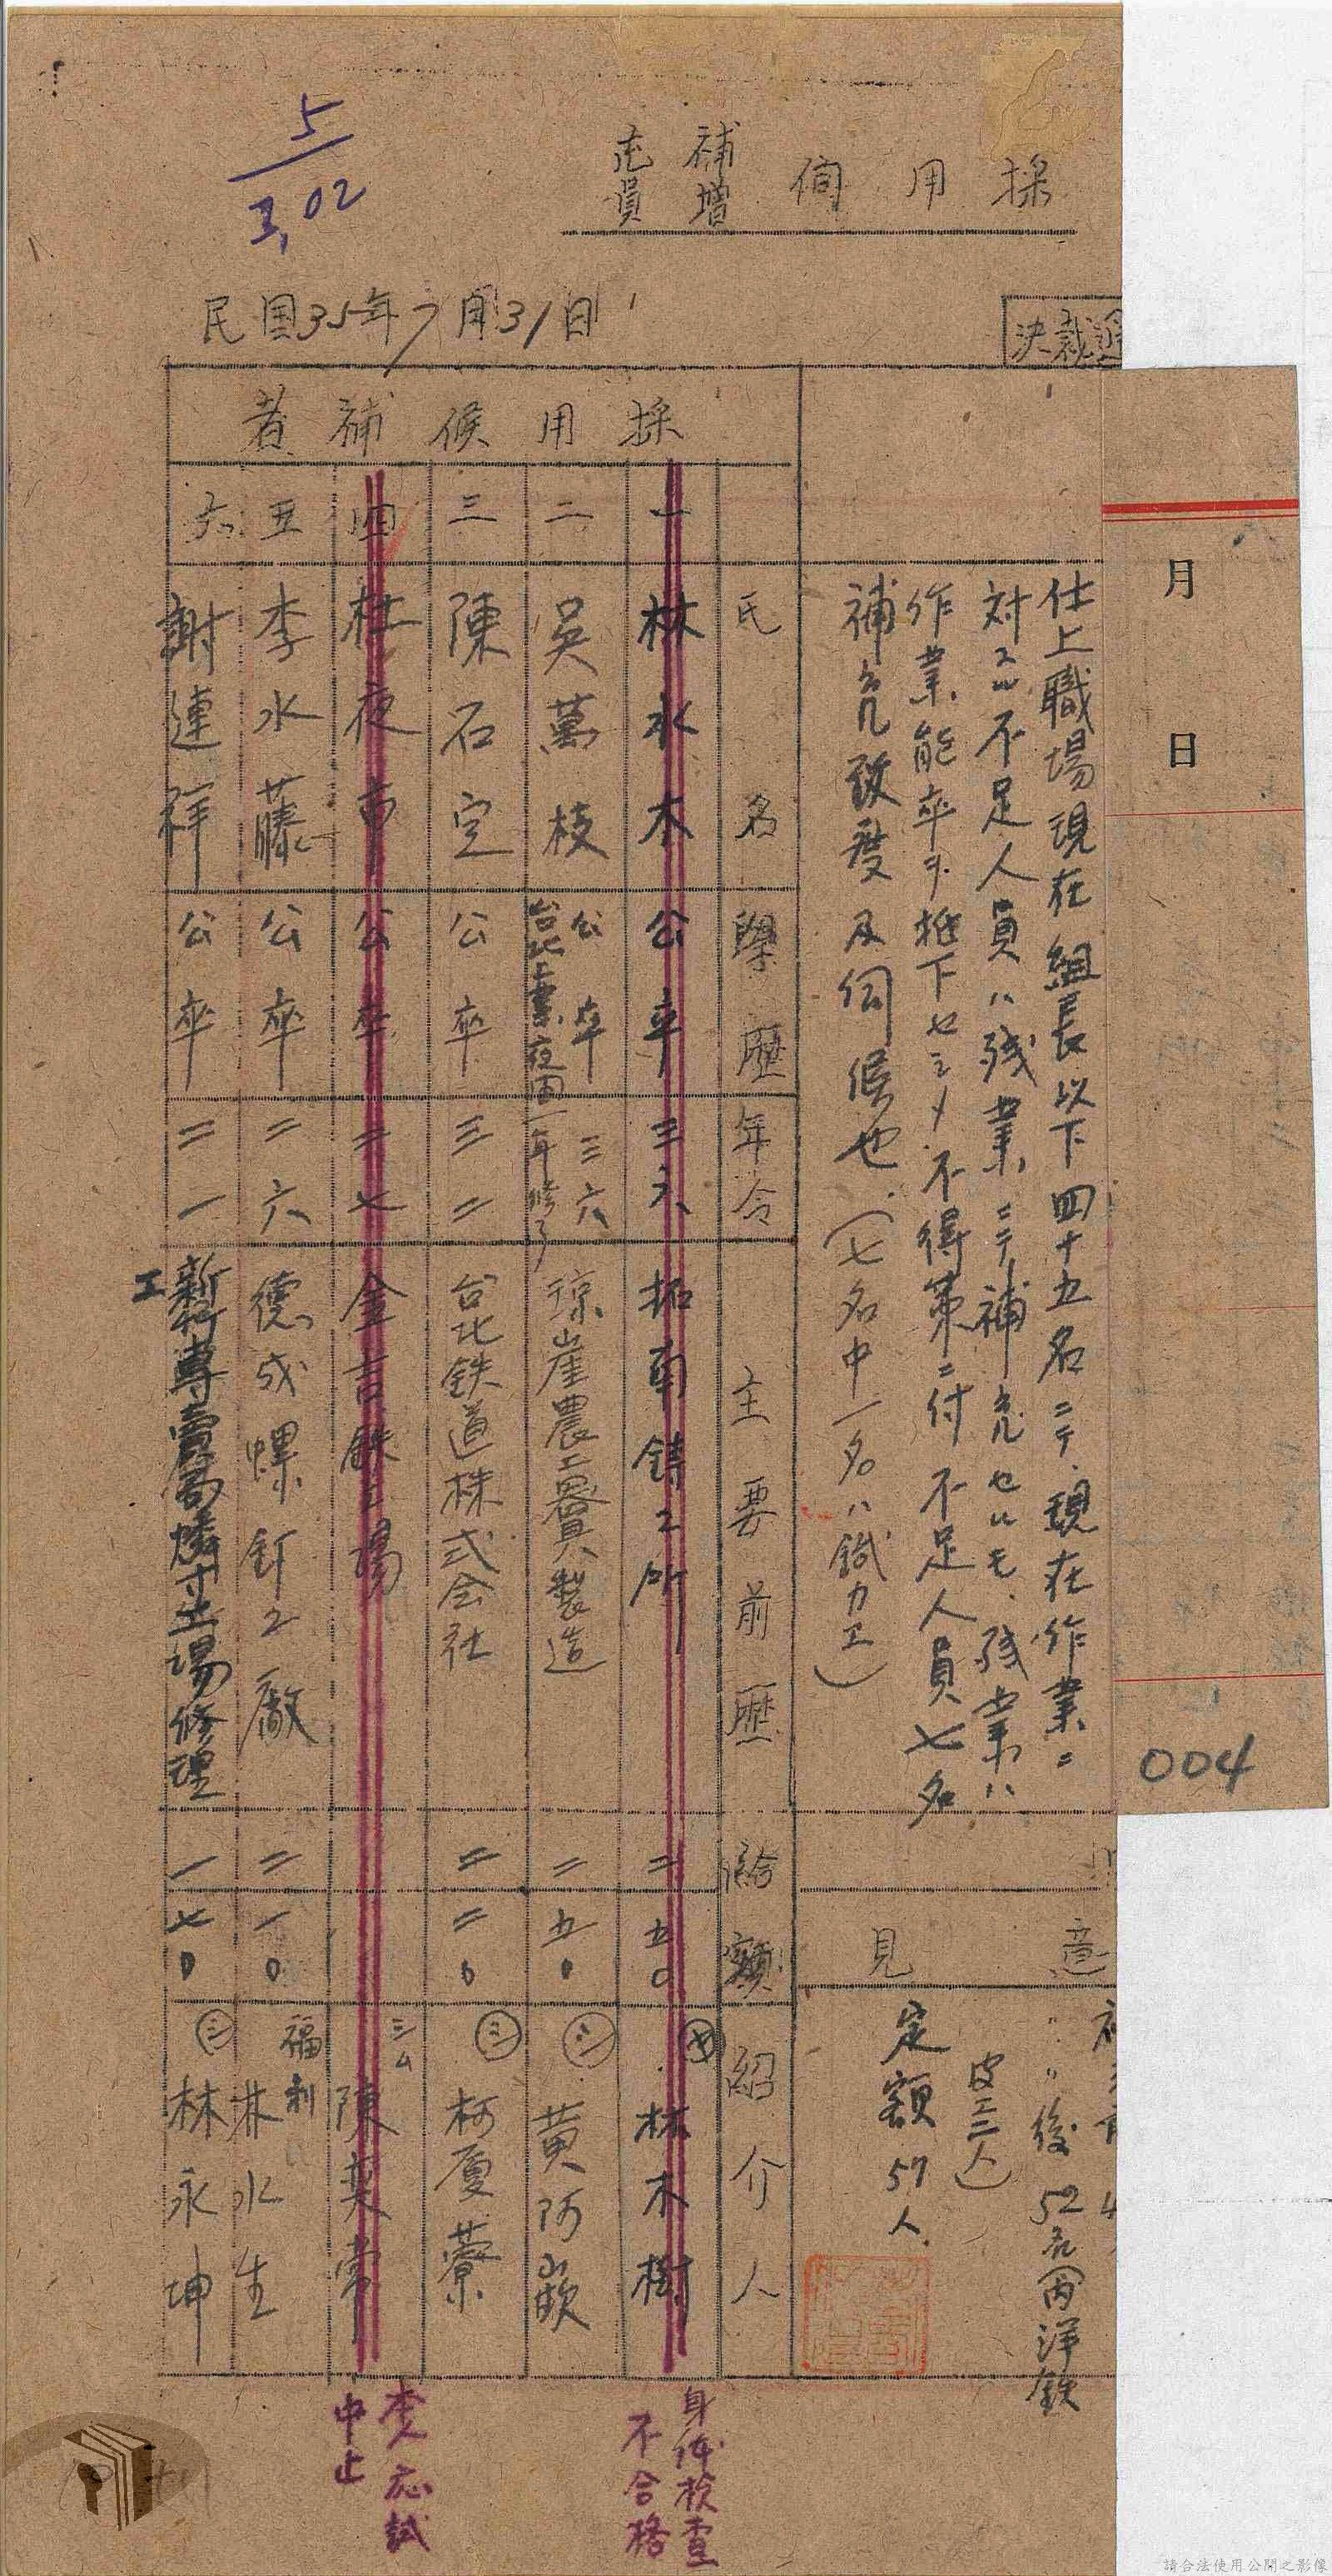 採用伺
補増
員
5
3,02
民国35年7月31日
決裁
月
日
004
仕上職場現在組長以下四十五名ニテ.現在作業ニ
対シ不足人員ハ残業ニテ補充セルモ.残業ハ
作業能率ヲ低下セシメ不得策ニ付不足人員七名
補充致度及伺候也.(七名中一名ハ錻力工)
意見
後52名(内洋鉄
皮工三人)
定額57人
採用候補者
氏名
學歴
年令
主要前歴
給額
紹介人
一 林水木 公卒 三六 拓南鋳工所 二五〇 林木樹
身体檢査
不合格
二 吳萬枝 公卒 台北工業夜間一年修了 三六 瓊崖農工器具製造 二五〇 黄阿嶔
三 陳石定 公卒 三二 台北鉄道株式会社 二二〇 柯厦藔
四 杜夜 公卒 二七 金吉鉄工場 陳奕常
本人応試
中止
五 李水藤 公卒 二六 德成螺釘工廠 二一〇 福利 林水生
六 謝連祥 公卒 二一 專賣局燐寸工場修理工 一七〇 ㊂ 林永坤
請合法使用公開之影像